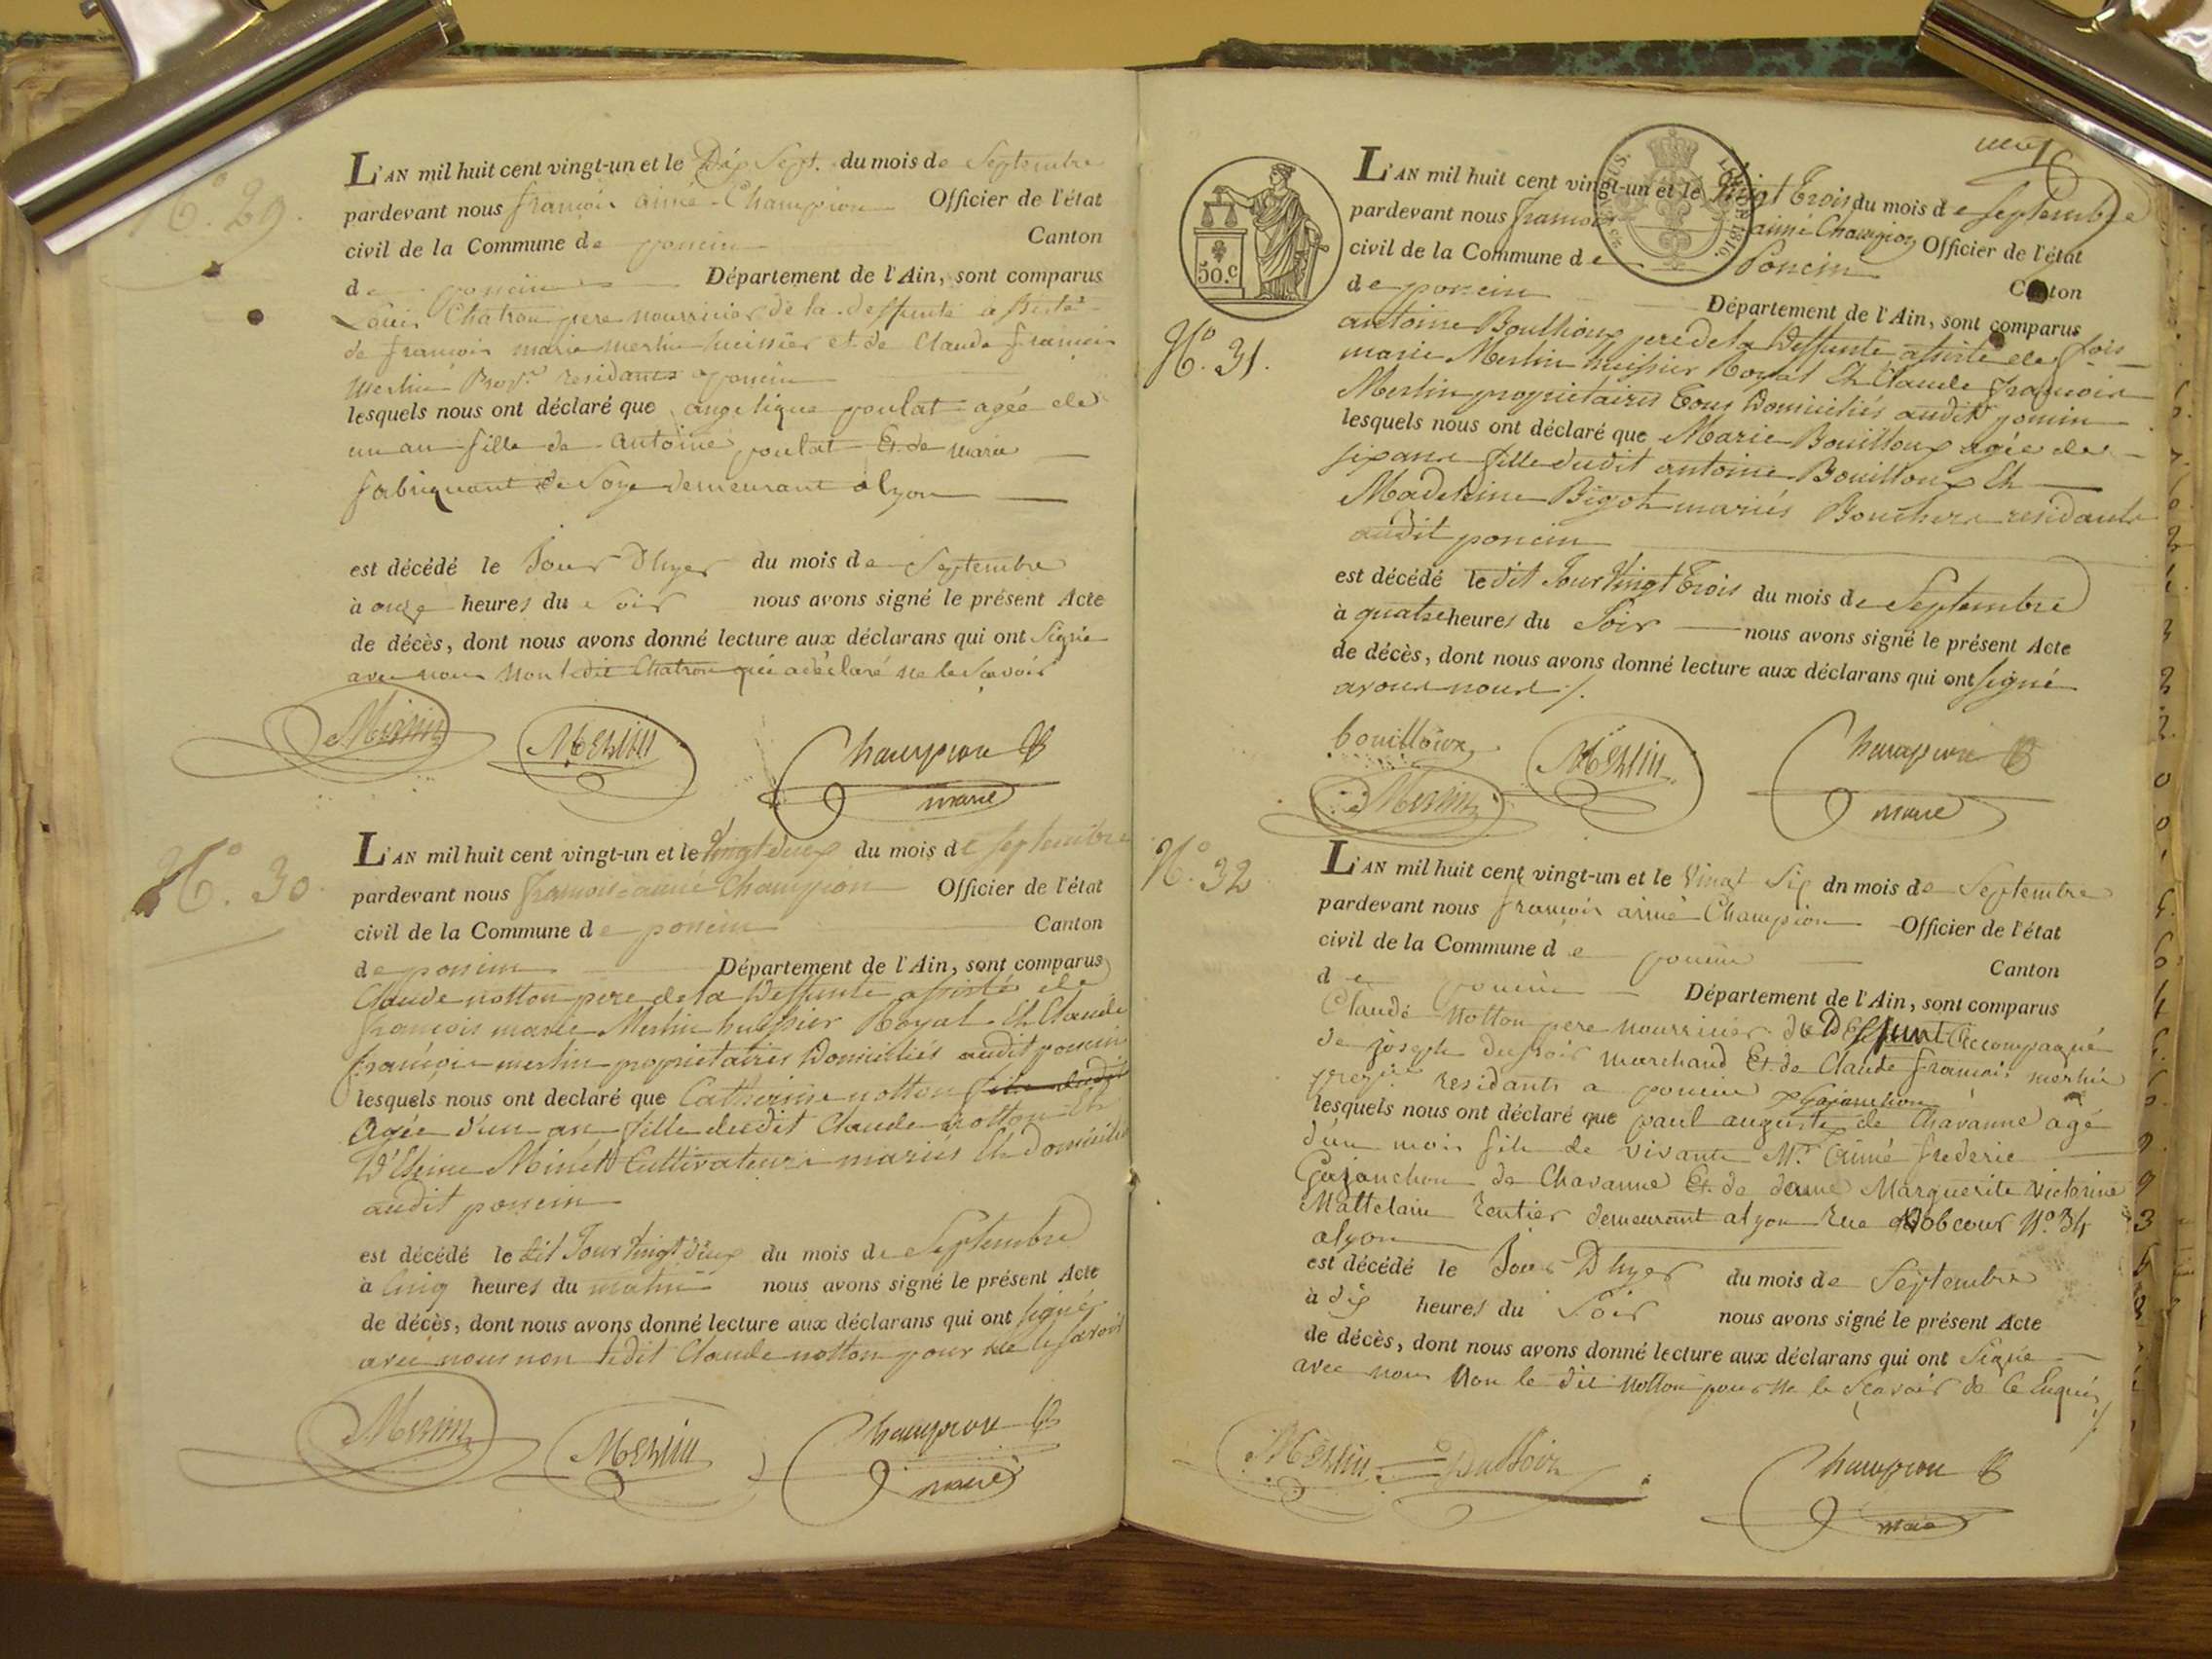 N.° 29.
L'AN mil huit cent vingt-un et le Dix Sept. du mois de Septembre
pardevant nous françois aimé Champion Officier de l'état
civil de la Commune de poncin Canton
de poncin Département de l'Ain, sont comparus
Louis Chatron pere nourricier de la deffunte assisté
de francois marie merlin huissier et de Claude francois
merlin residants a poncin
lesquels nous ont déclaré que angelique poulat agée de
un an fille de antoine poulat Et de marie
fabriquant de Soye demeurant a lyon
est décédé le Jour Dhyer du mois de Septembre
à onze heures du Soir nous avons signé le présent Acte
de décès, dont nous avons donné lecture aux déclarans qui ont Signé
avec nous Non ledit Chatron qui a déclaré ne le Scavoir
Merlin Merlin Champion
maire
N.° 30.
L'AN mil huit cent vingt-un et le Vingt deux du mois de septembre
pardevant nous françois aimé Champion Officier de l'état
civil de la Commune de poncin Canton
de poncin Département de l'Ain, sont comparus
Claude notton pere de la Deffunte assisté de
françois marie Merlin huissier Royal Et Claude
françois merlin propriétaires Domiciliés audit poncin
lesquels nous ont declaré que Catherine notton fille dudit
Agée d'un an fille dudit Claude notton Et
Cultivateurs mariés Et Domiciliés
audit poncin
est décédé le dit Jour Vingt deux du mois de Septembre
à Cinq heures du matin nous avons signé le présent Acte
de décès, dont nous avons donné lecture aux déclarans qui ont signé
avec nous non ledit Claude notton pour ne le savoir
Merlin Merlin Champion
maire
50.c
L'AN mil huit cent vingt-un et le Vingt Trois du mois de septembre
pardevant nous françois aimé Champion Officier de l'état
civil de la Commune de Poncin
de poncin Canton
Département de l'Ain, sont comparus
N.° 31.
antoine Bouilloux pere de la Deffunte assisté de fois
marie Merlin huissier Royal Et Claude françois
Merlin propriétaires Tous Domiciliés audit poncin
lesquels nous ont déclaré que Marie Bouilloux agée de
six ans fille dudit antoine Bouilloux Et
Madeleine Bigot mariés Bouchers residants
audit poncin
est décédé le dit Jour Vingt Trois du mois de Septembre
à quatre heures du Soir nous avons signé le présent Acte
de décès, dont nous avons donné lecture aux déclarans qui ont signé
avous nous /.
bouilloux Merlin Champion
Merlin maire
N.° 32
L'AN mil huit cent vingt-un et le Vingt Six dn mois de Septembre
pardevant nous françois aimé Champion Officier de l'état
civil de la Commune de poncin
de poncin Canton
Département de l'Ain, sont comparus
Claude Notton pere nourricier du Deffunt accompagné
de joseph dussoir marchand Et de Claude francois merlin
residants a poncin
Gajanchon
lesquels nous ont déclaré que paul auguste de Chavanne agé
d'un mois fils de vivants Mr. Aimé frederic
Gajanchon de Chavanne Et de dame Marguerite Victorine
Mattelain rentier demeurant a lyon rue N.° 34
a lyon
est décédé le Jour Dhyer du mois de Septembre
à dix heures du Soir nous avons signé le présent Acte
de décès, dont nous avons donné lecture aux déclarans qui ont Signé
avec nous Non le dit Notton pour ne le Scavoir de Ce Enquis
Merlin Dussoir Champion
maire